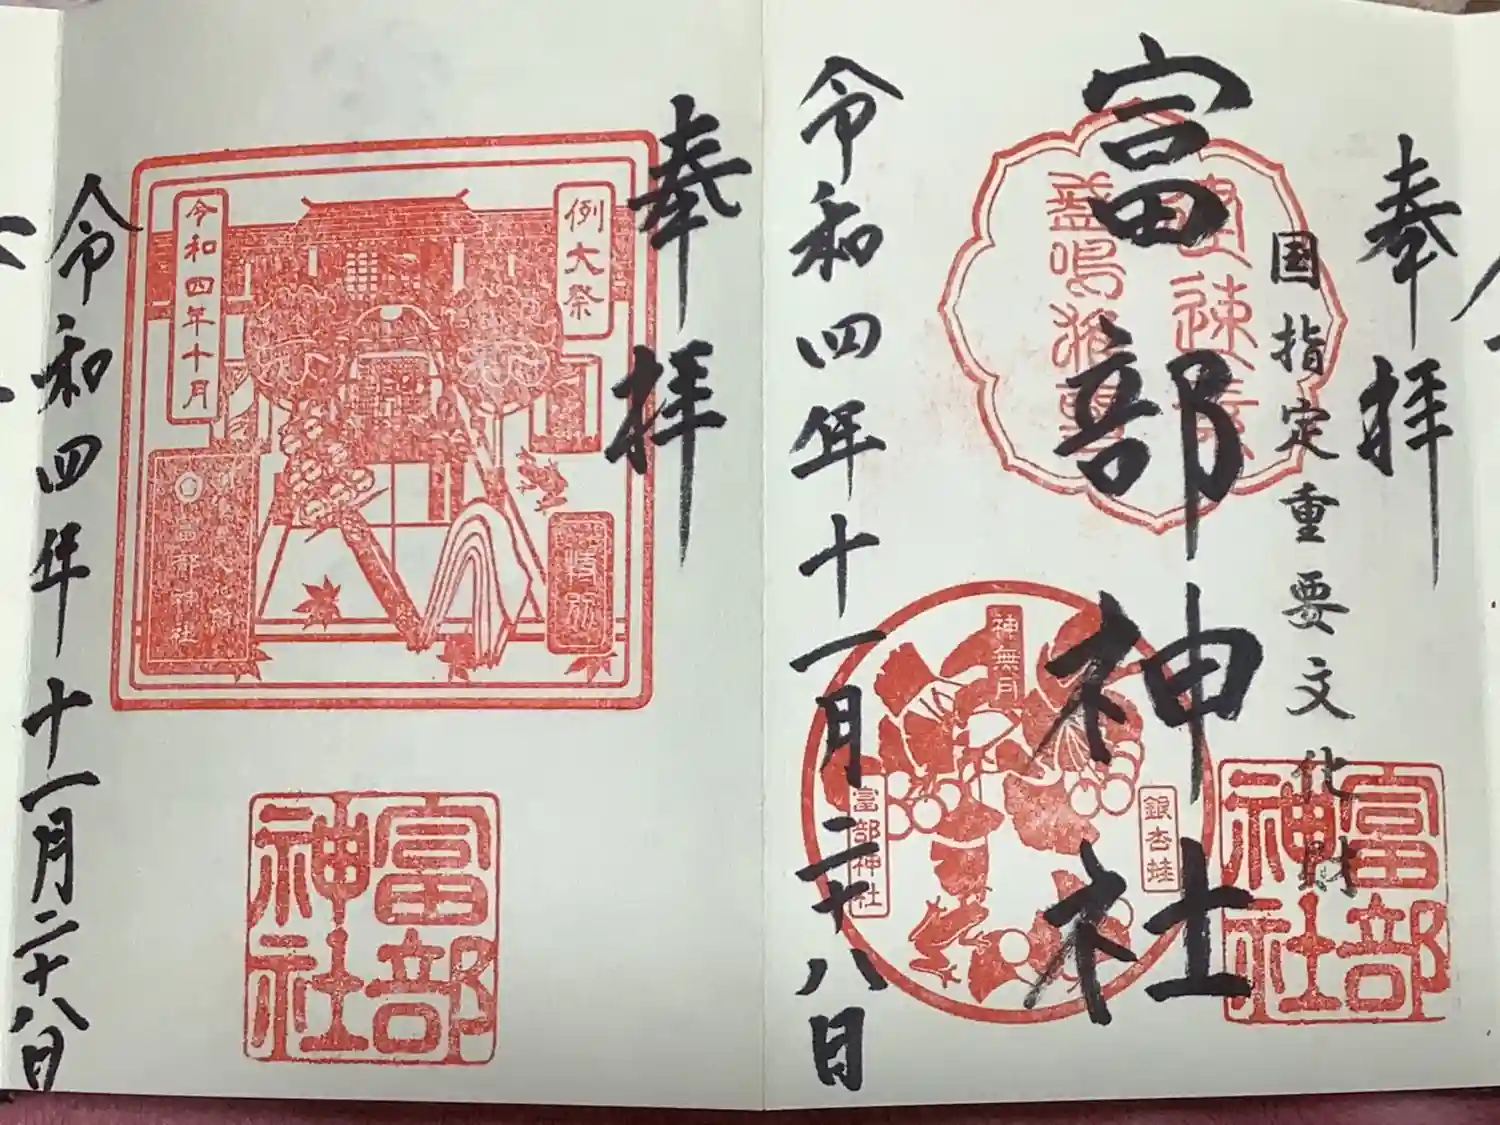 奉拝
国指定重要文化財
富部神社
令和四年十一月二十八日
神無月
銀杏蛙
富部神社
富部神社
奉拝
例大祭
令和四年十月
特別
富部神社
富部神社
令和四年十一月二十八日